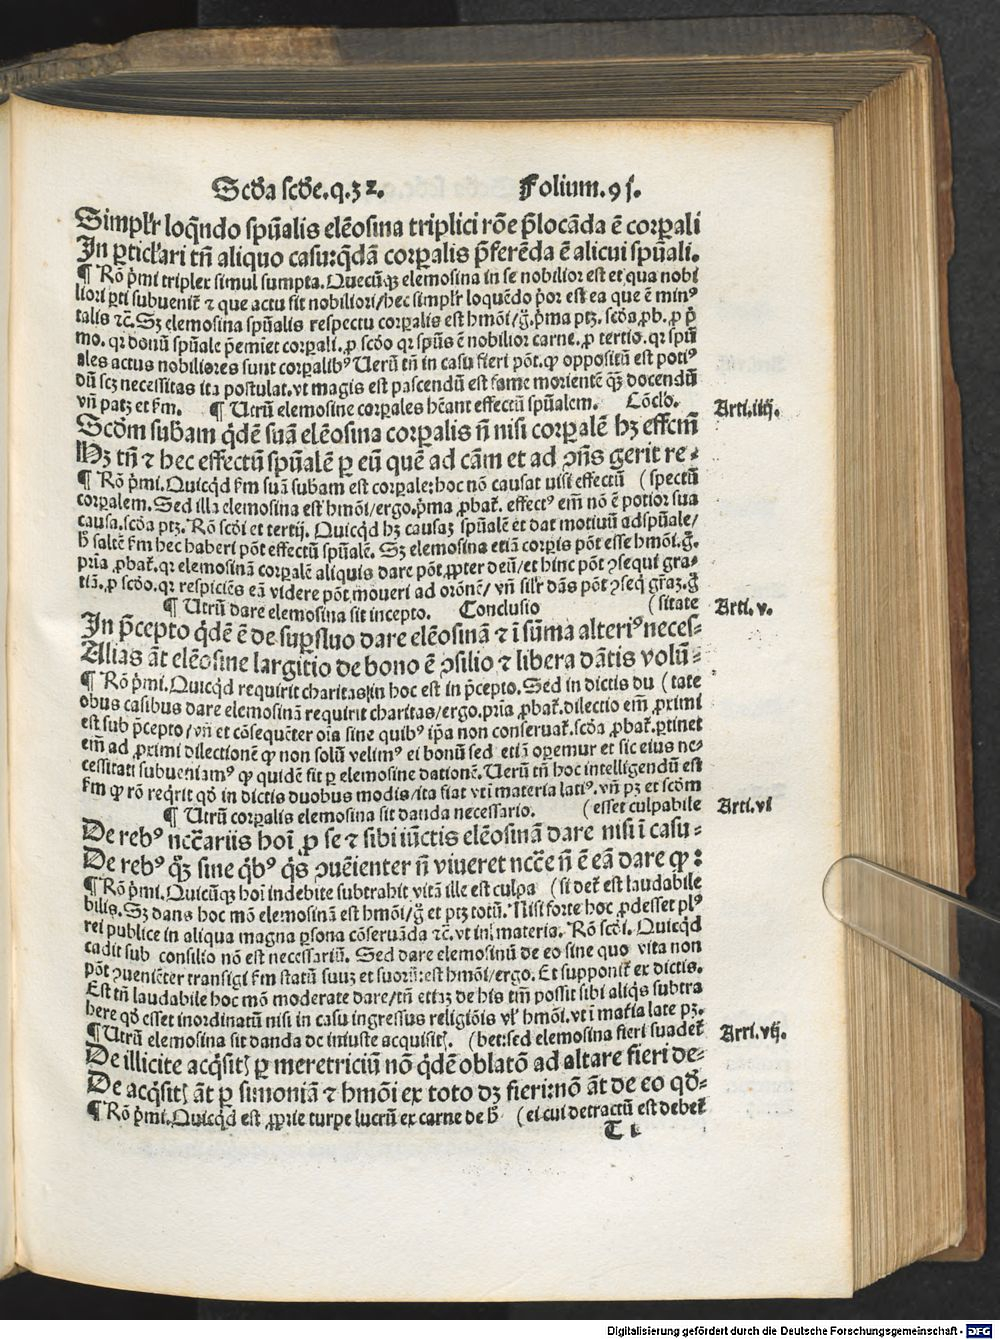 Scḋa scḋe.q.32.   Folium.9ſ.
Simpl'r loq̄ndo spūalis elēosina triplici rōe p̄locāda ē corꝑali
In ꝑticl'ari tn̄ aliquo casu:qdā corꝑalis p̄ferēda ē alicui spūali.
¶ Rō p̄mi triplex simul sumpta. Quecūqꝫ elemosina in se nobilior est et qua nobi
liori ꝑti subuenit̄ ⁊ que actu fit nobiliori/hec simpl'r loquēdo p̄or est ea que ē minꝰ
talis ⁊c̄. Sꝫ elemosina spūalis respectu corꝑalis est hmōi/g̊. p̄ma ptꝫ. scḋa ꝓb. ꝑ p̄
mo. qꝛ donū spūale p̄eminet corꝑali. ꝑ scḋo qꝛ spūs ē nobilior carne. ꝑ tertio. qꝛ spū
ales actus nobiliores sunt corꝑalibꝰ Uerū tn̄ in casu fieri pōt. ꝙ oppositū est potiꝰ
dū scꝫ necessitas ita postulat. vt magis est pascendū est fame morientē qꝫ docendū
vn̄ patꝫ et ẜm. ¶ Utrū elemosine corꝑales hēant effectū spūalem. Cōclo.
Arti.iiij.
Scḋm subām q̇dē suā elēosina corꝑalis n̄ nisi corꝑalē hꝫ effcm̄
Hꝫ tn̄ ⁊ hec effectū spūalē ꝑ eū quē ad cām et ad ꝯn̄s gerit re-
¶ Rō p̄mi. Quicq̇d ẜm suā subam est corꝑale: hoc nō causat nisi effectū (spectū
corꝑalem. Sed illa elemosina est hmōi/ergo. p̄ma ꝓbat̄. effectꝰ em̄ nō ē potior sua
causa. scḋa ptꝫ. Rō scḋi et tertij. Quicq̇d hꝫ causaꝫ spūalē et dat motiuū ad spūale/
h̄ saltē ẜm hec haberi pōt effectū spūalē. Sꝫ elemosina etiā corꝑis pōt esse hmōi. g̊.
p̄ria ꝓbat̄. qꝛ elemosinā corꝑalē aliquis dare pōt ꝓpter deū/et hinc pōt ꝯsequi gra-
tiā. ꝑ scḋo. qꝛ respiciēs eā videre pōt moueri ad oronē/ vn̄ sil'r dās pōt ꝯseq̇ grāꝫ. g̊
¶ Utrū dare elemosina sit incepto. Conclusio (sitate
Arti.v.
In p̄cepto q̇dē ē de suꝑfluo dare elēosinā ⁊ ī sūma alteriꝰ neces-
Alias āt elēosine largitio de bono ē ꝯsilio ⁊ libera dātis volū-
¶ Rō p̄mi. Quicq̇d requirit charitas/in hoc est in p̄cepto. Sed in dictis du (tate
obus casibus dare elemosinā requirit charitas/ergo. p̄ria ꝓbat̄. dilectio em̄ ꝓximi
est sub p̄cepto/vn̄ et cōsequēter oīa sine quibꝰ ip̄a non conseruat̄. scḋa ꝓbat̄. ꝑtinet
em̄ ad ꝓximi dilectionē ꝙ non solū velimꝰ ei bonū sed etiā oꝑemur et sic eius ne-
cessitati subueniamꝰ ꝙ quidē fit ꝑ elemosine dationē. Uerū tn̄ hoc intelligendū est
ẜm ꝙ rō req̇rit qḋ in dictis duobus modis/ita fiat vti materia latiꝰ. vn̄ pꝫ et scḋm
¶ Utrū corꝑalis elemosina sit danda necessario. (esset culpabile
Arti.vi
De rebꝰ nccāriis hoī ꝓ se ⁊ sibi iūctis elēosinā dare nisi ī casu-
De rebꝰ q̇ꝫ sine q̇bꝰ q̇s ꝯuēienter n̄ viueret nccē n̄ ē eā dare ꝙ:
¶ Rō p̄mi. Quicūqꝫ hoī indebite subtrahit vitā ille est culpa (si det̄ est laudabile
bilis. Sꝫ dans hoc mō elemosinā est hmōi/g̊ et ptꝫ totū. Nisi forte hoc ꝓdesset plꝰ
rei publice in aliqua magna ꝑsona cōseruāda ⁊c̄. vt in materia. Rō scḋi. Quicq̇d
cadit sub consilio nō est necessariū. Sed dare elemosinū de eo sine quo vita non
pōt ꝯueniēter transigi ẜm statū suuꝫ et suoꝝ: est hmōi/ergo. Et supponit̄ ex dictis.
Est tn̄ laudabile hoc mō moderate dare/tn̄ etiaꝫ de his tm̄ possit sibi aliq̇s subtra
here qḋ esset inordinatū nisi in casu ingressus religiōis vl' hmōi. vt ī mat̄ia late pꝫ.
¶ Utrū elemosina sit danda de iniuste acquisitꝭ. (bet: sed elemosina fieri suadet̄
Arti.vij.
De illicite acq̇sitꝭ ꝑ meretriciū nō q̇dē oblatō ad altare fieri de-
De acq̇sitꝭ āt ꝑ simoniā ⁊ hmōi ex toto dꝫ fieri: nō āt de eo qḋ-
¶ Rō p̄mi. Quicq̇d est ꝓprie turpe lucrū ex carne de h̄ (ei cui detractū est debet̄
T 1
Digitalisierung gefördert durch die Deutsche Forschungsgemeinschaft - DFG